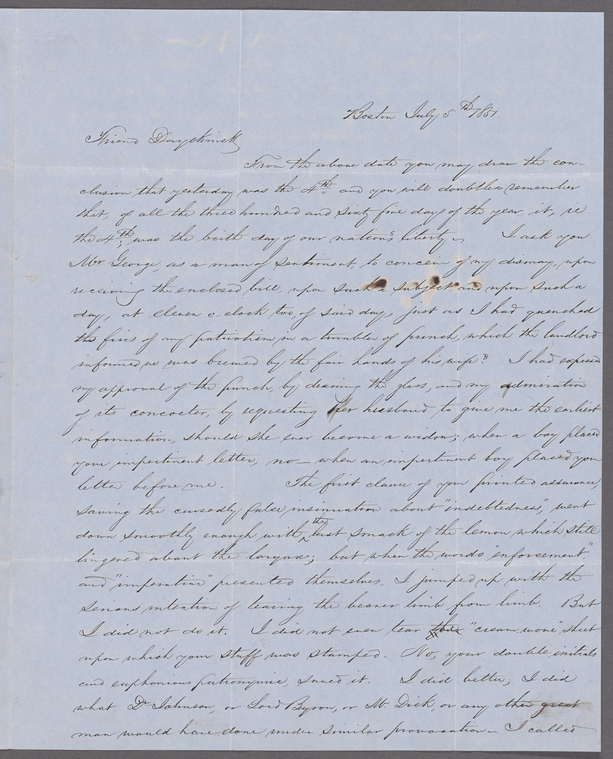 Boston July 5th 1851
Friend Duyckinck
From the above date you may draw the con-
clusion that yesterday was the 4th and you will doubtless remember
that, of all the three hundred and sixty five days of the year, it, ie
the 4th, was the birth day of our nation's liberty. I ask you
Mr George, as a man of sentiment, to conceive of my dismay, upon
receiving the enclosed bill, upon such a subject and upon such a
day, at eleven o clock too, of said day, just as I had quenched
the fires of my patriotism in a tumbler of punch, which the landlord
informed us was brewed by the fair hands of his wife? I had expressed
my approval of the punch, by draining the glass, and my admiration
of its concoctor, by requesting her husband, to give me the earliest
information, should she ever become a widow; when a boy placed
your impertinent letter, no — when an impertinent boy placed your
letter before me. The first clause of your printed assurance,
saving the cursedly false insinuation about "indebtedness," went
down smoothly enough with the last smack of the lemon which still
lingered about the larynx; but when the words "enforcement"
and "imperative" presented themselves I jumped up with the
serious intention of tearing the bearer limb from limb. But
I did not do it. I did not even tear the "cream wove" sheet
upon which your stuff was stamped. No, your double initials
and euphonious patronymic, saved it. I did better; I did
what Dr Johnson, or Lord Byron, or Mr. Dick or any other great
man would have done under similar provocation — I called